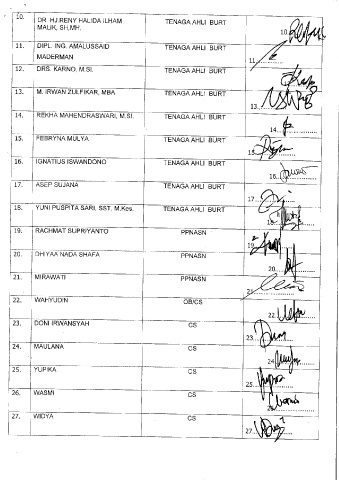 10. DR. HJ.RENY HALIDA ILHAM MALIK, SH,MH. TENAGA AHLI BURT 10.
11. DIPL. ING. AMALUSSAID MADERMAN TENAGA AHLI BURT 11.
12. DRS. KARNO, M.SI. TENAGA AHLI BURT
13. M. IRWAN ZULFIKAR, MBA TENAGA AHLI BURT 13.
14. REKHA MAHENDRASWARI, M.SI. TENAGA AHLI BURT 14.
15. FEBRYNA MULYA TENAGA AHLI BURT 15.
16. IGNATIUS ISWANDONO TENAGA AHLI BURT 16.
17. ASEP SUJANA TENAGA AHLI BURT 17.
18. YUNI PUSPITA SARI, SST, M.Kes. TENAGA AHLI BURT 18.
19. RACHMAT SUPRIYANTO PPNASN 19.
20. DHIYAA NADA SHAFA PPNASN 20.
21. MIRAWATI PPNASN 21.
22. WAHYUDIN OB/CS 22.
23. DONI IRWANSYAH CS 23.
24. MAULANA CS 24.
25. YUPIKA CS 25.
26. WASMI CS 26.
27. WIDYA CS 27.